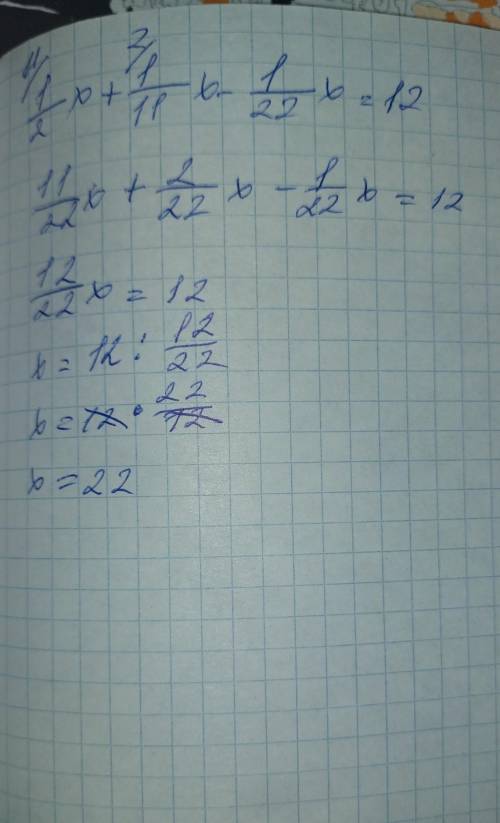 11/ 1/2 x + 2/ 1/11 x - 1/22 x = 12
11/22 x + 2/22 x - 1/22 x = 12
12/22 x = 12
x = 12 : 12/22
x = 12 · 22/12
x = 22